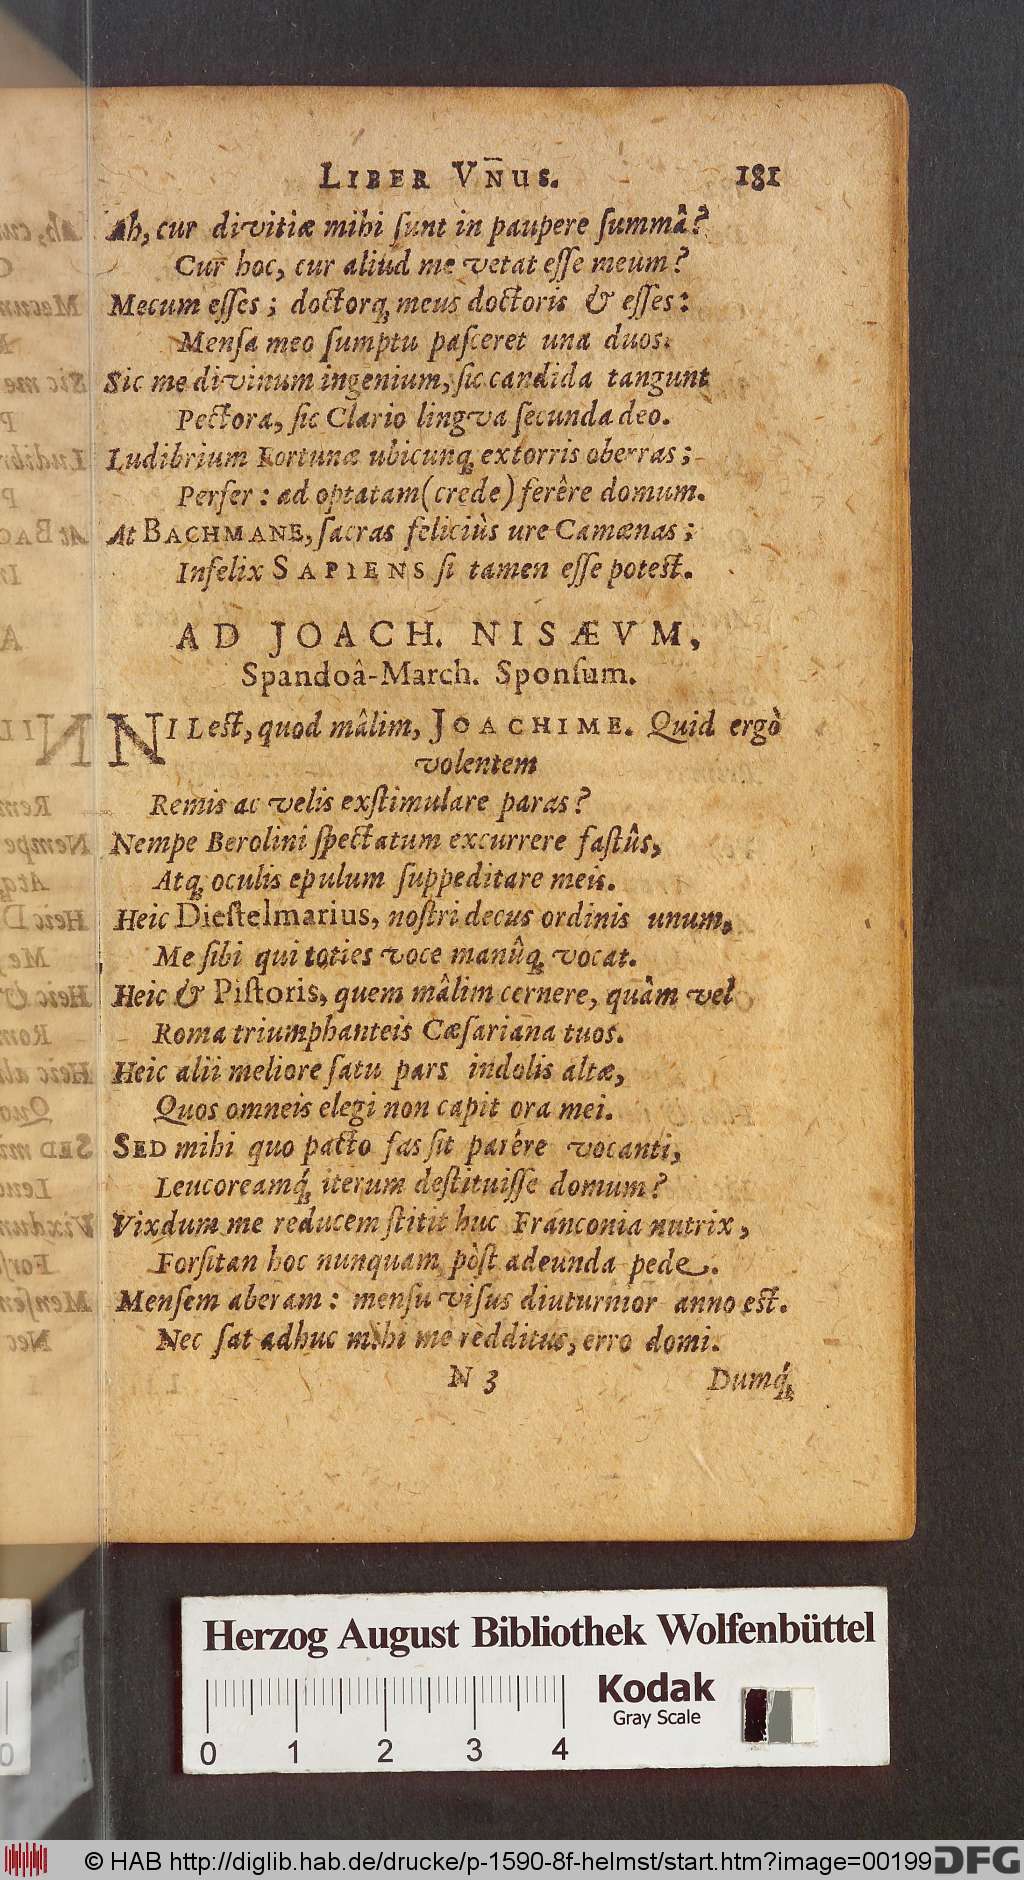 LIBER VNUS. 181
Ah, cur divitiæ mihi ſunt in paupere ſummâ?
Cur hoc, cur aliud me vetat eſſe meum?
Mecum eſſes; doctorq́; meus doctoris & eſſes:
Menſa meo ſumptu paſceret una duos.
Sic me divinum ingenium, ſic candida tangunt
Pectora, ſic Clario lingva ſecunda deo.
Ludibrium Fortunæ ubicunq; extorris oberras;
Perfer: ad optatam (crede) ferêre domum.
At BACHMANE, ſacras feliciùs ure Camœnas;
Infelix SAPIENS ſi tamen eſſe poteſt.
AD JOACH. NISÆVM,
Spandoâ-March. Sponſum.
NIL eſt, quod mâlim, JOACHIME. Quid ergò
volentem
Remis ac velis exſtimulare paras?
Nempe Berolini ſpectatum excurrere faſtûs,
Atq; oculis epulum ſuppeditare meis.
Heic Dieſtelmarius, noſtri decus ordinis unum,
Me ſibi qui toties voce manûq; vocat.
Heic & Piſtoris, quem mâlim cernere, quàm vel
Roma triumphanteis Cæſariana tuos.
Heic alii meliore ſatu pars indolis altæ,
Quos omneis elegi non capit ora mei.
SED mihi quo pacto fas ſit parére vocanti,
Leucoreamq́; iterum deſtituiſſe domum?
Vixdum me reducem ſtitit huc Franconia nutrix,
Forſitan hoc nunquam pòſt adeunda pede.
Menſem aberam: menſu viſus diuturnior anno eſt.
Nec ſat adhuc mihi me redditus, erro domi.
N 3 Dumq́;
Herzog August Bibliothek Wolfenbüttel
Kodak
Gray Scale
0 1 2 3 4
© HAB http://diglib.hab.de/drucke/p-1590-8f-helmst/start.htm?image=00199
DFG